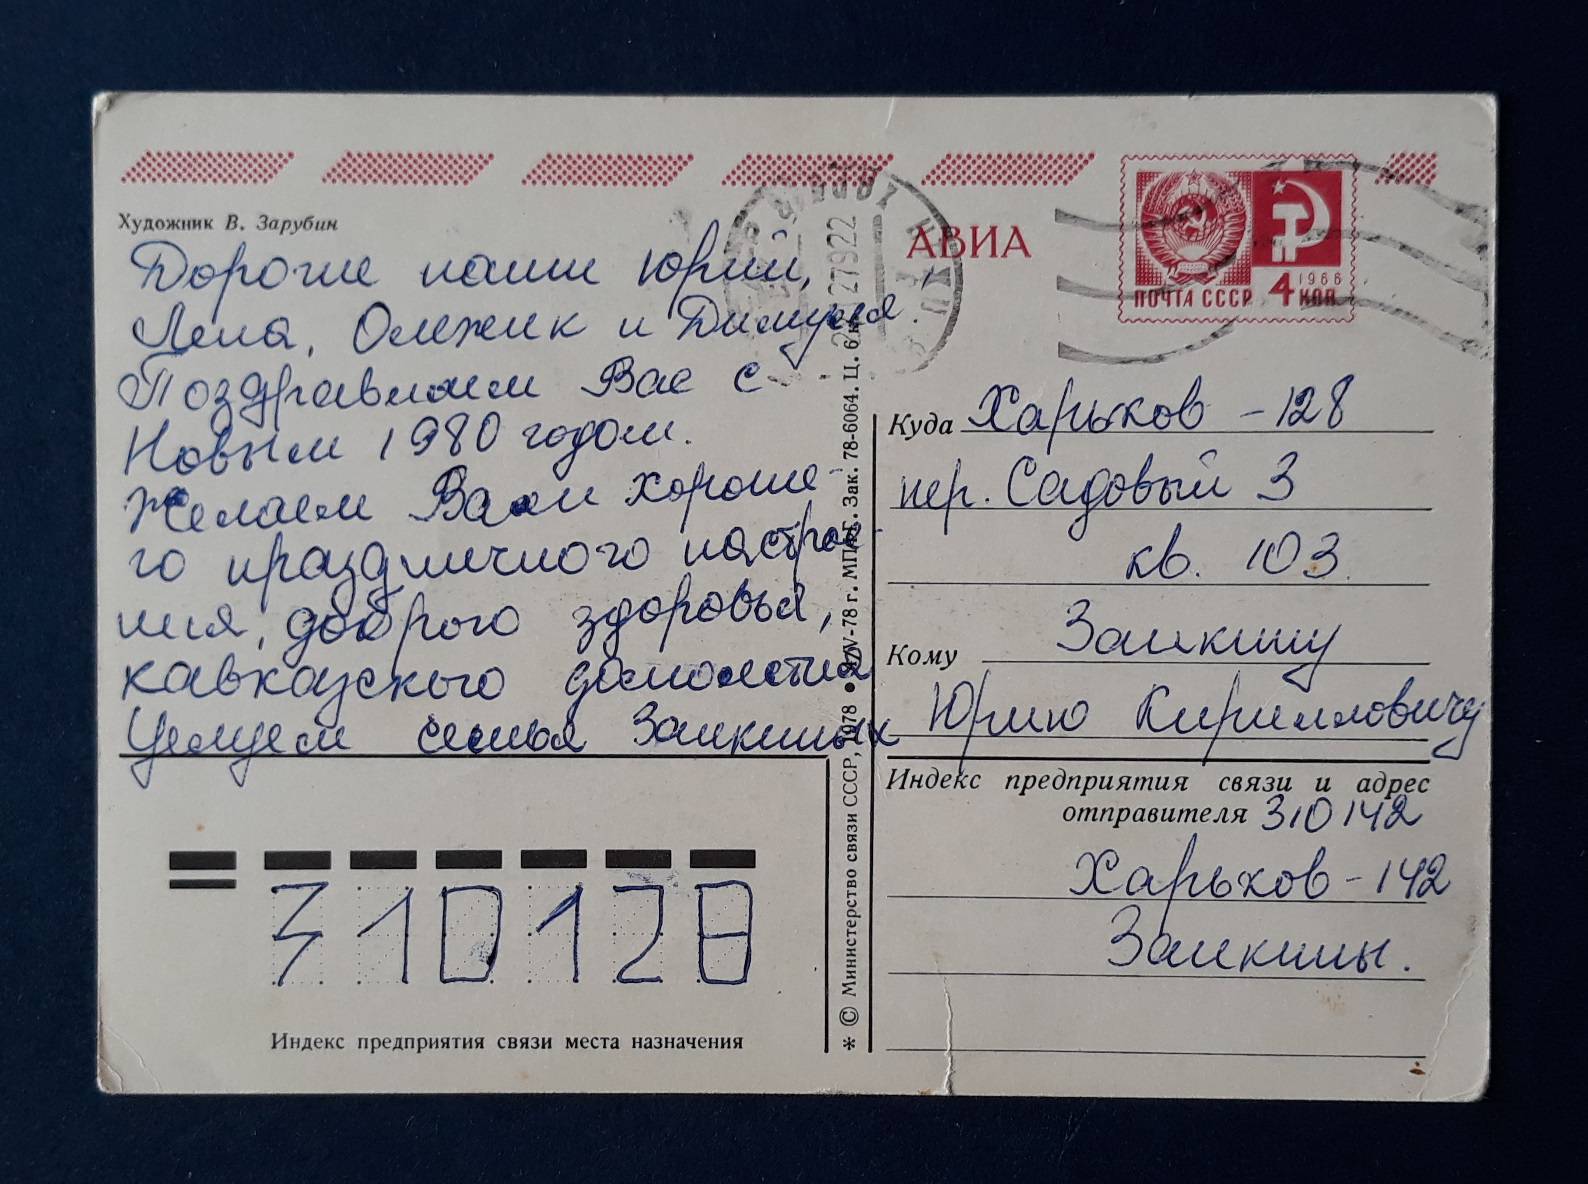 Художник В. Зарубин
Дорогие наши Юрий,
Лена, Олежик и Димуся.
Поздравляем Вас с
Новым 1980 годом.
Желаем Вам хороше-
го праздничного настрое-
ния, доброго здоровья,
кавказского долголетия
Целуем семья Заикиных
310128
Индекс предприятия связи места назначения
* © Министерство связи СССР, 1978 • 78 г. МПФГ. Зак. 78-6064. Ц. 6 к.
АВИА
ПОЧТА СССР 4 КОП 1966
Куда Харьков - 128
пер. Садовый 3
кв. 103.
Кому Заикину
Юрию Кирилловичу
Индекс предприятия связи и адрес
отправителя 310142
Харьков - 142
Заикины.